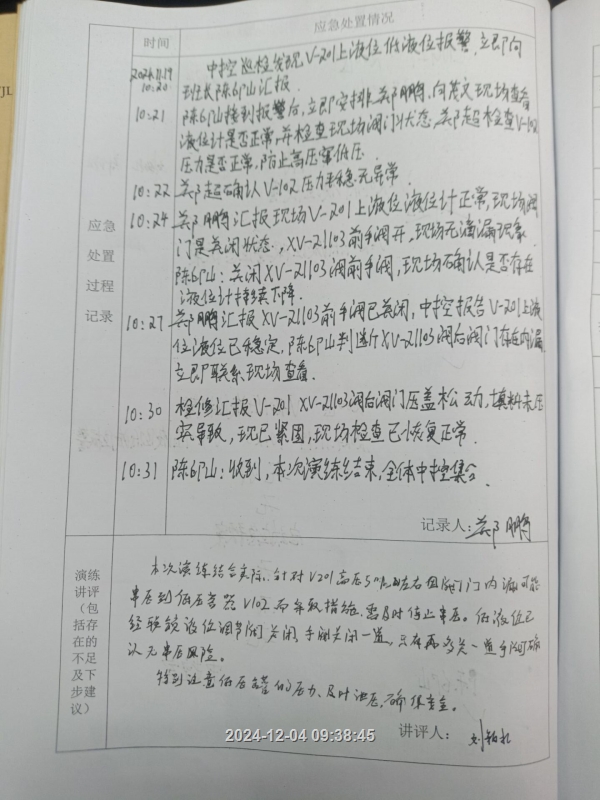 应急处置情况
时间
2024.11.19
10:20
中控巡检发现V-201上液位低液位报警,立即向
班长陈6户山汇报
10:21
陈6户山接到报警后,立即安排郑鹏、向茂文现场查看
液位计是否正常,并检查现场阀门状态,郑超检查V-102
压力是否正常,防止高压窜低压.
10:22
郑超确认V-102压力平稳无异常.
10:24
郑鹏汇报现场V-201上液位液位计正常,现场阀
门是关闭状态,XV-21103前手阀开,现场无滴漏现象.
陈6户山:关闭XV-21103阀前手阀,现场确认是否存在
液位计持续下降.
10:27
郑鹏汇报XV-21103前手阀已关闭,中控报告V-201上液
位液位已稳定,陈6户山判断XV-21103阀后阀门存在内漏
立即联系现场查看.
10:30
检修汇报V-201 XV-21103阀后阀门压盖松动,填料未压
实导致,现已紧固,现场检查已恢复正常.
10:31
陈6户山:收到,本次演练结束,全体中控集合.
应急
处置
过程
记录
记录人:郑鹏
演练
讲评
(包
括存
在的
不足
及下
步建
议)
本次演练结合实际,针对V201高压
阀门内漏可能
串压到低压容器V102而采取措施,需及时停止串压。低液位已
经联锁液位调节阀关闭,手阀关闭一道,只有再关一道手阀可确
认无串压风险。
特别注意低压罐的压力、及时泄压,确保安全。
讲评人:
2024-12-04 09:38:45